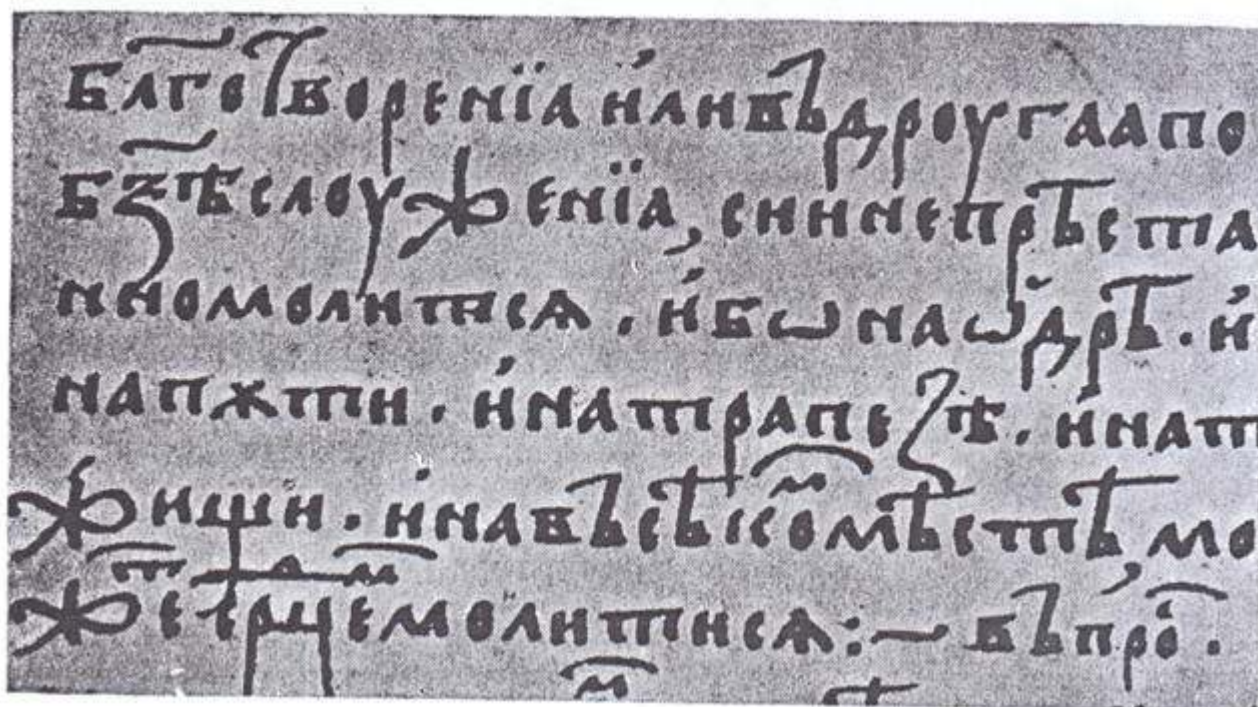 бл҃готворенїа и҆ливъдроугаапо
бз҃ѣслоуженїа, сиинепрѣста
нномолитисѧ. и҆бѡнаѡ҆дрѣ. и҆
напѫти. и҆натрапеꙁѣ. и҆нат
жищи. и҆навъсѣкоⷨмѣстѣ, мо
жеⷮсрⷣцеⷨмолитисѧ:~ въпрⷪ҇.